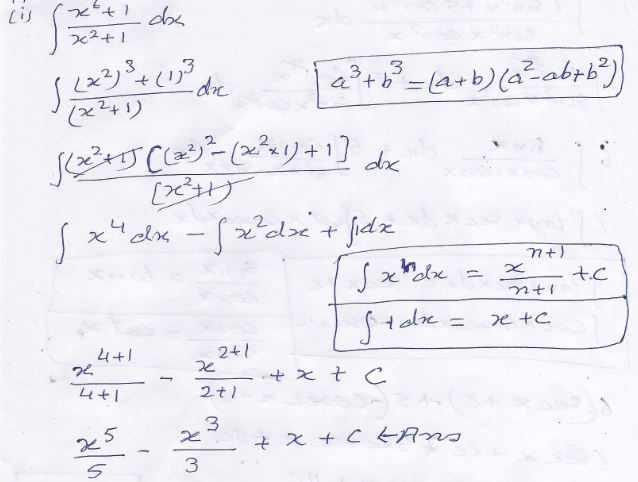 (is) ∫ (x⁶ + 1)/(x² + 1) dx
∫ ((x²)³ + (1)³)/(x² + 1) dx
a³ + b³ = (a+b)(a² - ab + b²)
∫ (x² + 1)[(x²)² - (x² × 1) + 1]/(x² + 1) dx
∫ x⁴ dx - ∫ x² dx + ∫ 1dx
∫ xⁿ dx = xⁿ⁺¹/(n+1) + c
∫ 1 dx = x + c
x⁴⁺¹/(4+1) - x²⁺¹/(2+1) + x + c
x⁵/5 - x³/3 + x + c ← Ans